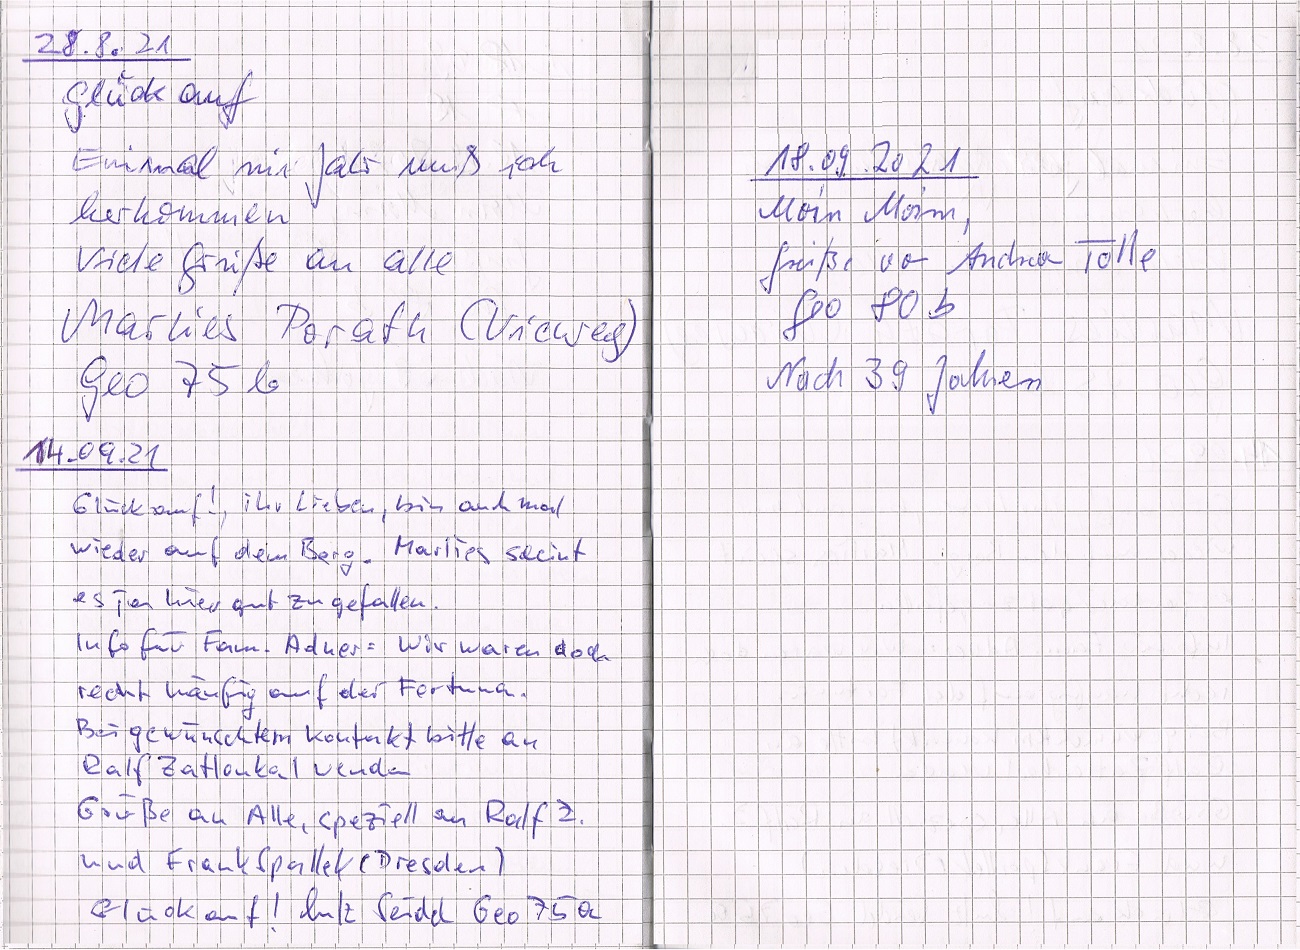 28.8.21
Glück auf
Einmal im Jahr muß ich
herkommen
Viele Grüße an alle
Marlies Porath (Vieweg)
Geo 75 b
14.09.21
Glück auf!, ihr Lieben, bin auch mal
wieder auf dem Berg. Marlies sceint
es ja hier gut zu gefallen.
Info für Fam. Adner: Wir waren doch
recht häufig auf der Fortuna.
Bei gewünschtem Kontakt bitte an
Ralf Zatloukal
Grüße an Alle, speziell an Ralf Z.
und Frank Spallek (Dresden)
Glück auf! Lutz Seidel Geo 75a
18.09.2021
Moin Moin,
Grüße von Andrea Tölle
Geo 80 b
Nach 39 Jahren